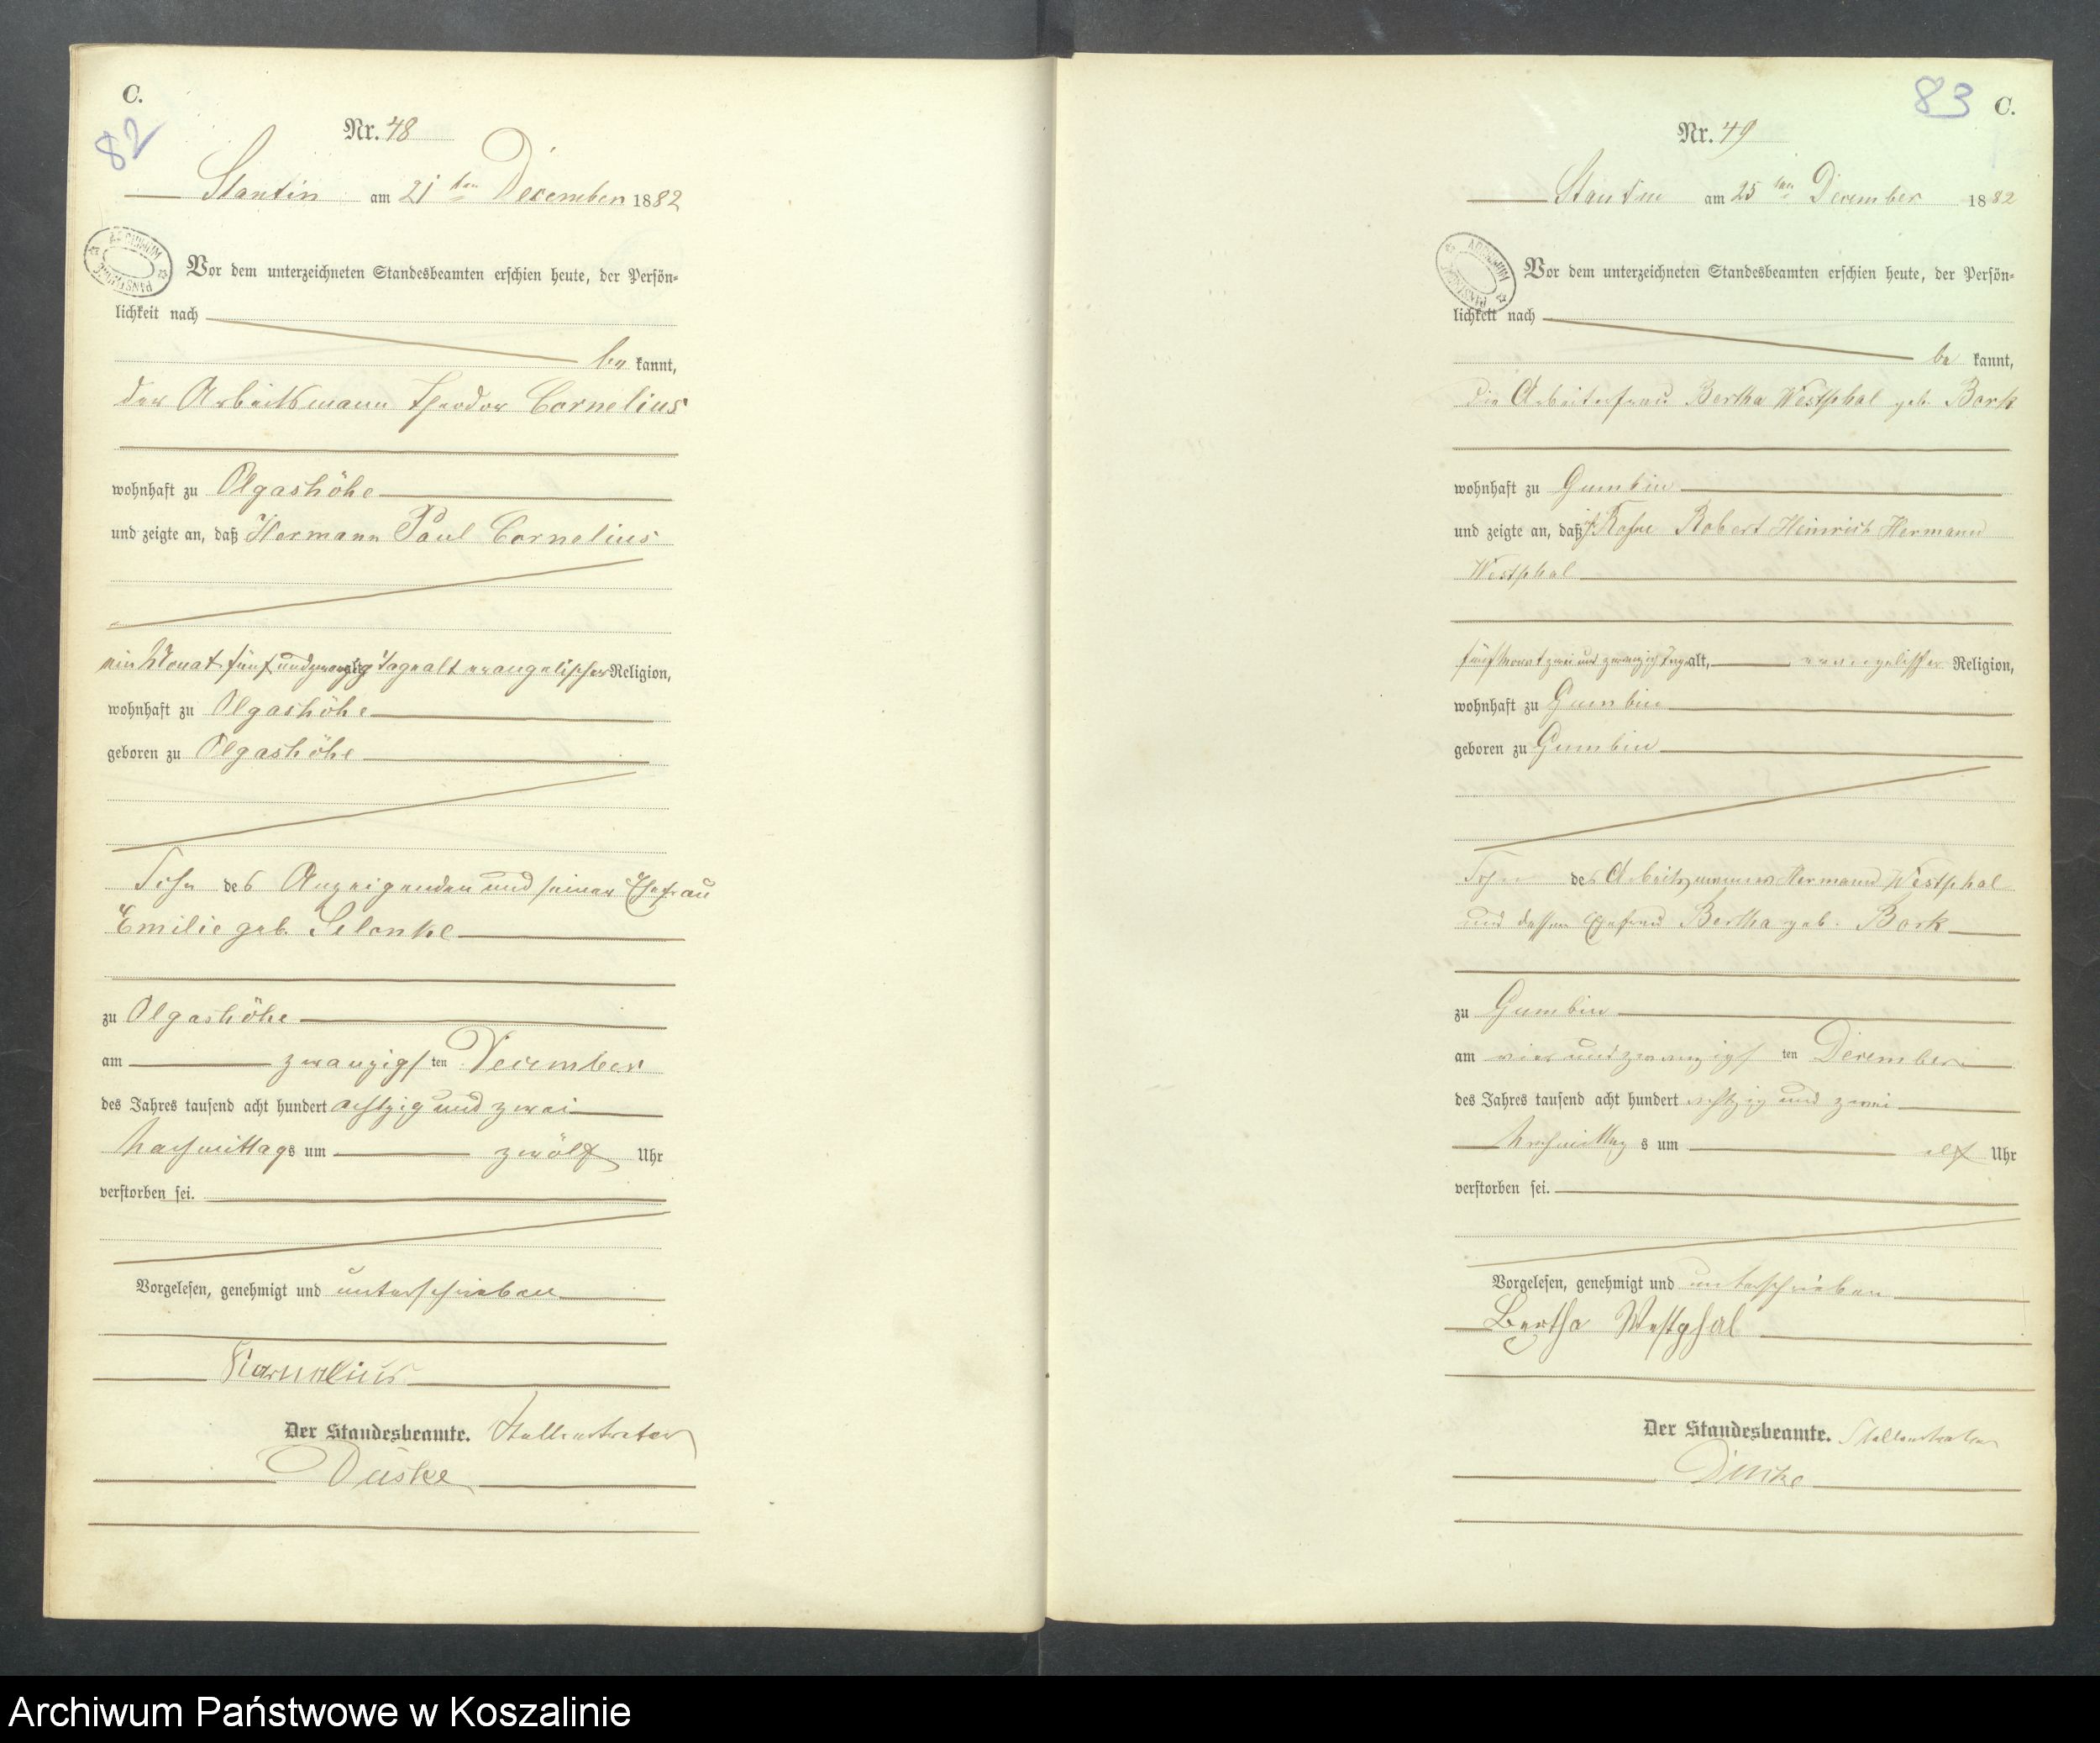 C.
82
Nr. 48
Stantin am 21 ten December 1882
ARCHIWUM PAŃSTWOWE
Vor dem unterzeichneten Standesbeamten erschien heute, der Persön-
lichkeit nach
be kannt,
der Arbeitsmann Theodor Cornelius
wohnhaft zu Olgashöhe
und zeigte an, daß Hermann Paul Cornelius
ein Monat fünf und zwanzig Tage alt evangelischer Religion,
wohnhaft zu Olgashöhe
geboren zu Olgashöhe
Sohn des Anzeigenden und seiner Ehefrau
Emilie geb. Selonke
zu Olgashöhe
am zwanzigsten December
des Jahres tausend acht hundert achtzig und zwei
Nachmittags um zwölf Uhr
verstorben sei.
Vorgelesen, genehmigt und unterschrieben
Kornelius
Der Standesbeamte. Stellvertreter
Duske
83 C.
Nr. 49
Stantin am 25 ten December 1882
ARCHIWUM PAŃSTWOWE
Vor dem unterzeichneten Standesbeamten erschien heute, der Persön-
lichkeit nach
be kannt,
die Arbeiterfrau Bertha Westphal geb. Bork
wohnhaft zu Gumbin
und zeigte an, daß Robert Heinrich Hermann
Westphal
fünf Monat zwei und zwanzig Tage alt, evangelischer Religion,
wohnhaft zu Gumbin
geboren zu Gumbin
Sohn des Arbeitsmannes Hermann Westphal
und dessen Ehefrau Bertha geb. Bork
zu Gumbin
am vier und zwanzigsten December
des Jahres tausend acht hundert achtzig und zwei
Nachmittags um elf Uhr
verstorben sei.
Vorgelesen, genehmigt und unterschrieben
Bertha Westphal
Der Standesbeamte. Stellvertreter
Duske
Archiwum Państwowe w Koszalinie